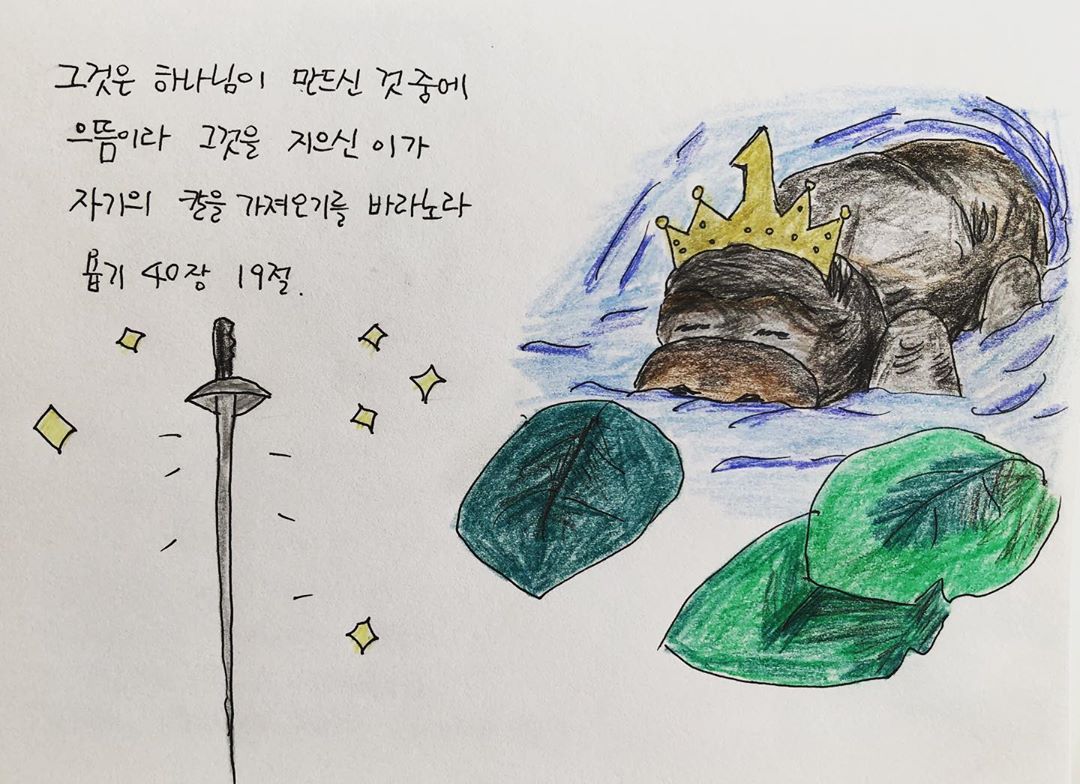 그것은 하나님이 만드신 것 중에
으뜸이라 그것을 지으신 이가
자기의 칼을 가져오기를 바라노라
욥기 40장 19절.
1